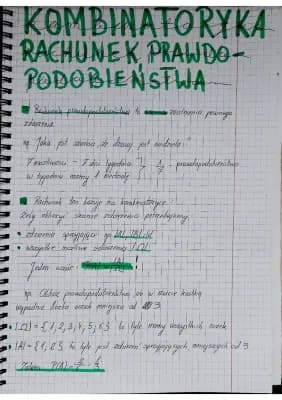 KOMBINATORYKA
RACHUNEK PRAWDO-
PODOBIEŃSTWA
Rachunek prawdopodobieństwa to zdarzenia pewnego
zdarzenia.
np. Jaka jest szansa, że dzisiaj jest niedziela?
7 możliwości - 7 dni tygodnia 1/7 - prawdopodobieństwo
w tygodniu mamy 1 niedzielę
Rachunek ten bazuje na kombinatoryce.
Żeby obliczyć szansę zdarzenia potrzebujemy:
zdarzenia sprzyjające np. |A|, |B|
wszystkie możliwe zdarzenia |Ω|
Jeden wzór
np. Oblicz prawdopodobieństwo, że w rzucie kostką
wypadnie liczba oczek mniejsza od 3
|Ω| = {1, 2, 3, 4, 5, 6} to tyle mamy wszystkich oczek
|A| = {1, 2} to tyle jest zdarzeń sprzyjających, mniejszych od 3